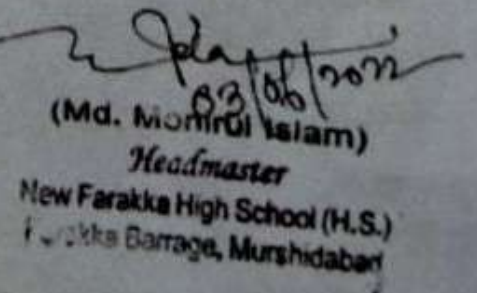 03/06/2022
(Md. Monirul Islam)
Headmaster
New Farakka High School (H.S.)
Farakka Barrage, Murshidabad